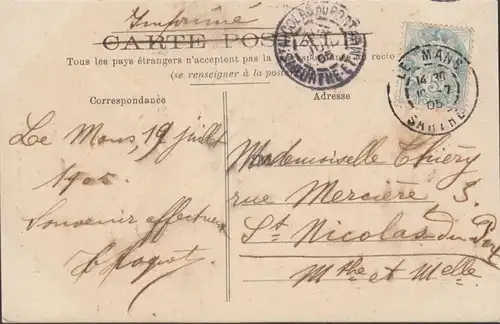 Imprimé
CARTE POSTALE
Tous les pays étrangers n'acceptent pas la recto
(se renseigner à la poste
Correspondance
Adresse
ST NICOLAS DU PORT
MEURTHE-ET-M
05
LE MANS
14 30
-7
05
SARTHE
Le Mans, 19 juillet
1905
Souvenir affectueux
Mademoiselle Thiéry
rue Mercière, 3
St Nicolas du Port
Mthe et Melle